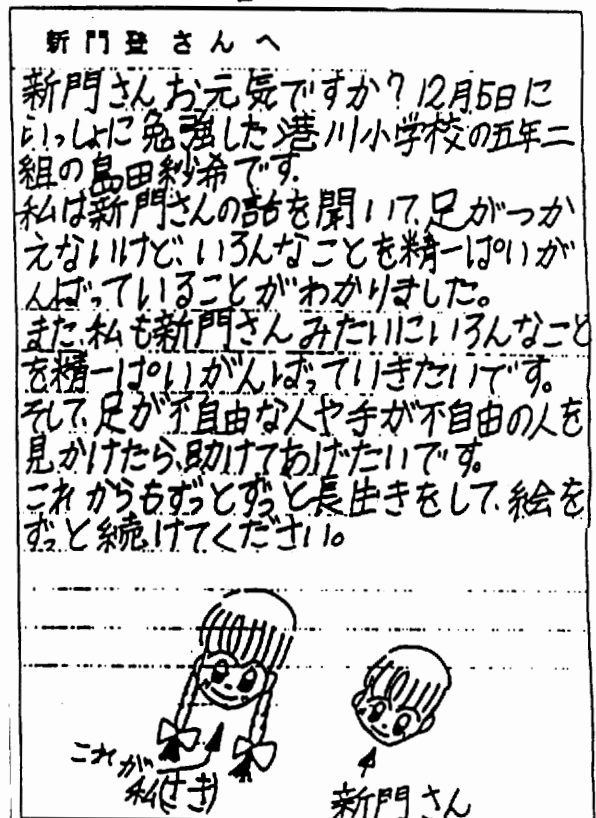 新門登さんへ
新門さんお元気ですか?12月5日に
いっしょに勉強した港川小学校の五年二
組の島田紗希です。
私は新門さんの話を聞いて、足がつか
えないけど、いろんなことを精一ぱいが
んばっていることがわかりました。
また、私も新門さんみたいにいろんなこと
を精一ぱいがんばっていきたいです。
そして、足が不自由な人や手が不自由の人を
見かけたら、助けてあげたいです。
これからもずっとずっと長生きをして、絵を
ずっと続けてください。
これが
私(さき)
新門さん